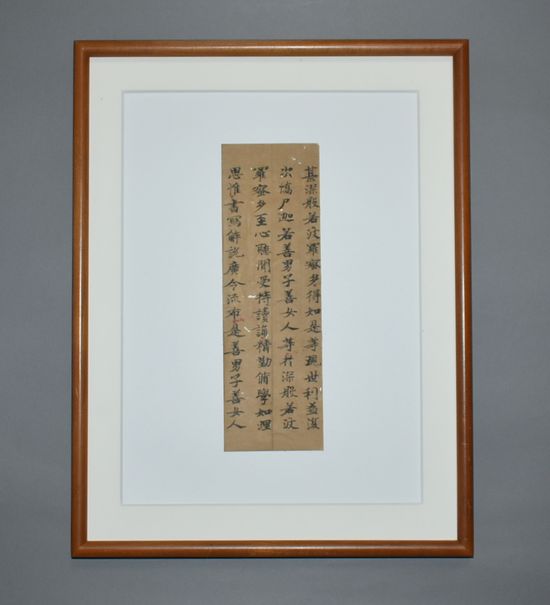 甚深般若波羅蜜多得如是等現世利益復
次憍尸迦若善男子善女人等於深般若波
羅蜜多至心聽聞受持讀誦精勤脩學如理
思惟書寫解說廣令流布是善男子善女人